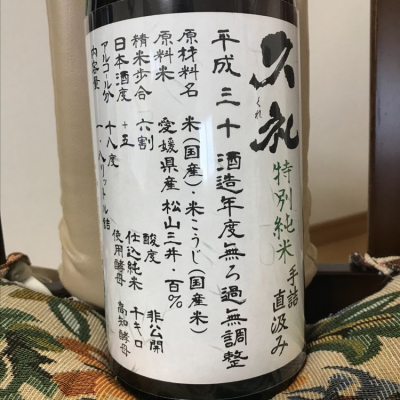 久礼
くれ
特別純米
手詰直汲み
平成三十酒造年度無ろ過無調整
原材料名 米(国産)・米こうじ(国産米)
原料米 愛媛県産 松山三井・百%
精米歩合 六割
日本酒度 +五
アルコール分 十八度
内容量 一・八リットル詰
酸度 非公開
仕込純米 千キロ
使用酵母 高知酵母